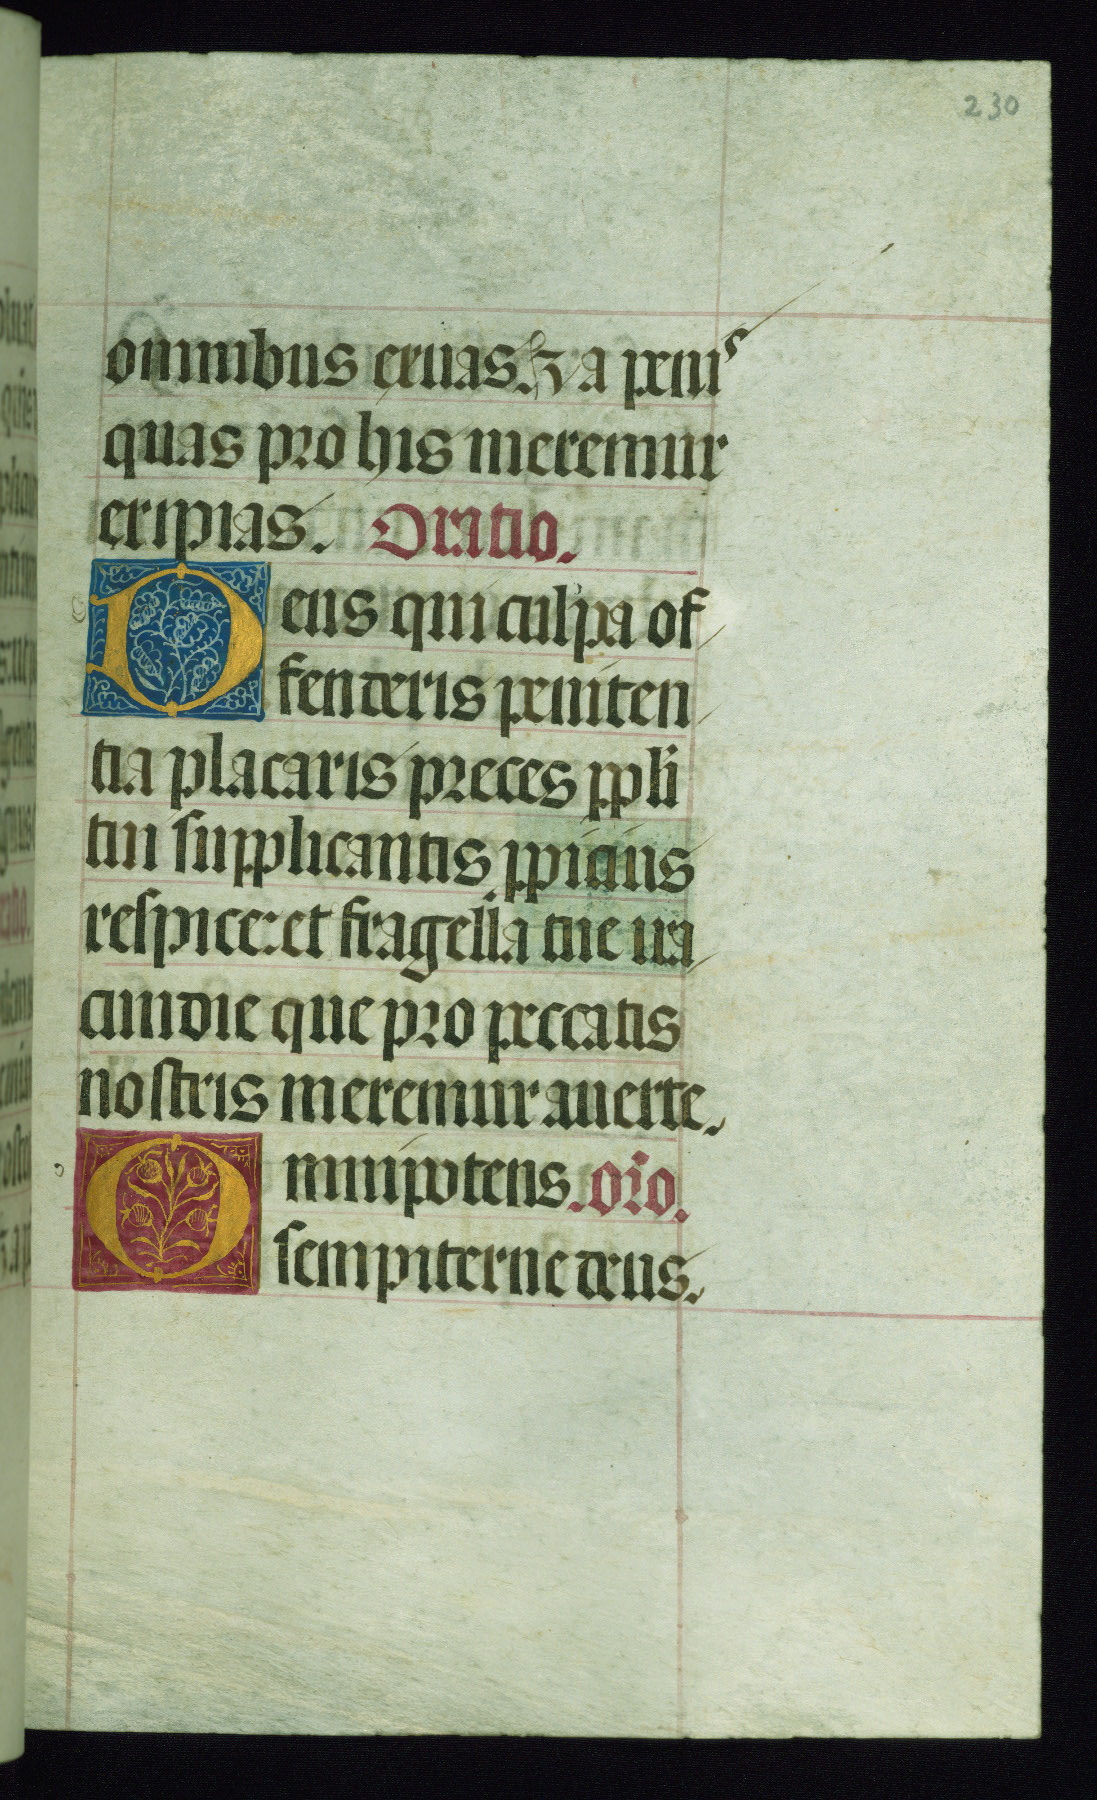 230
omnibus exuas. ⁊ a peni⁹
quas pro his meremur
eripias. Oratio.
Deus qui culpa of
fenderis peniten
tia placaris preces ppli
tui supplicantis ppicius
respice: et fragella tue ira
cundie que pro peccatis
nostris meremur auerte.
Omnipotens. Oro.
sempiterne deus.